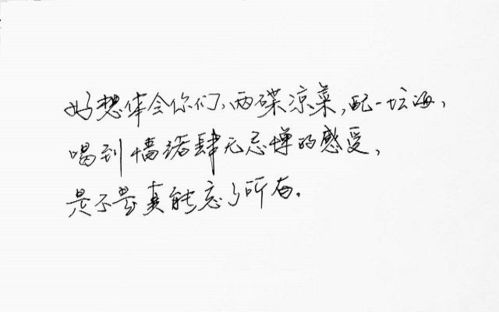 好想体会你们，两碟凉菜，配一坛酒，
喝到情绪肆无忌惮的感受，
是不是真能忘了所有。